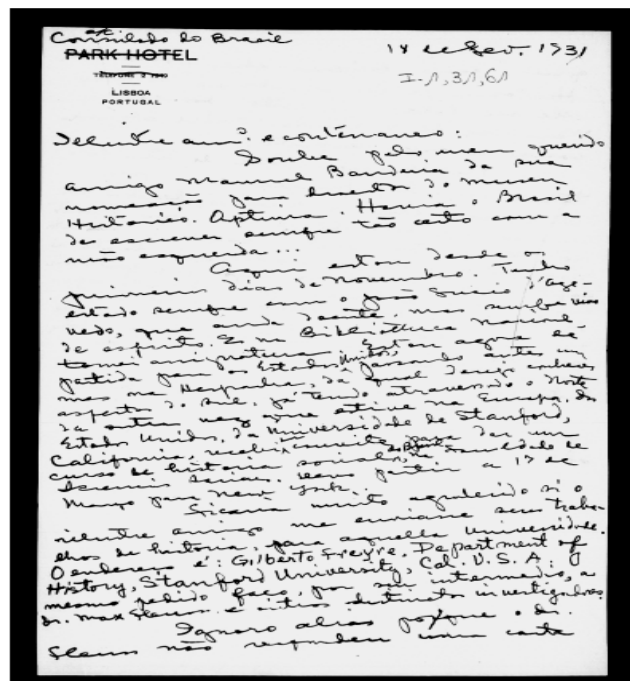 a/c
Consulado do Brasil
PARK HOTEL
TELEFONE 2
LISBOA
PORTUGAL
14 de Fev. 1931
I-1,31,61
Illustre amº. e conterraneo:
Soube pelo meu querido
amigo Manuel Bandeira da sua
nomeação para director do museu
Historico. Optima. Havia o Brasil
de escrever sempre tão certo com a
mão esquerda...
Aqui estou desde os
primeiros dias de Novembro. Tenho
estado sempre com o João Lucio d'Aze-
vedo, que anda doente, mas sempre vivo
de espirito. E na Bibliotheca Nacional
tomei assignatura. Estou agora de
partida para os Estados Unidos, passando antes um
mes na Hespanha, da qual desejo conhecer
aspectos do sul, já tendo atravessado o Norte
da outra vez que estive na Europa. Dos
Estados Unidos, da Universidade de Stanford,
California, recebi convite para dar um
curso de historia social, na Faculdade de
Sciencias Sociaes. Devo partir a 17 de
Março para New York.
Ficaria muito agradecido si o
illustre amigo me enviasse seus traba-
lhos de historia, para aquella Universidade.
O endereço é: Gilberto Freyre, Department of
History, Stanford University, Cal. U.S.A. O
mesmo pedido faço, por seu intermedio, a
Dr. Max Fleiuss e outros distinctos investigadores.
Ignoro aliás porque o dr.
Fleiuss não respondeu uma carta